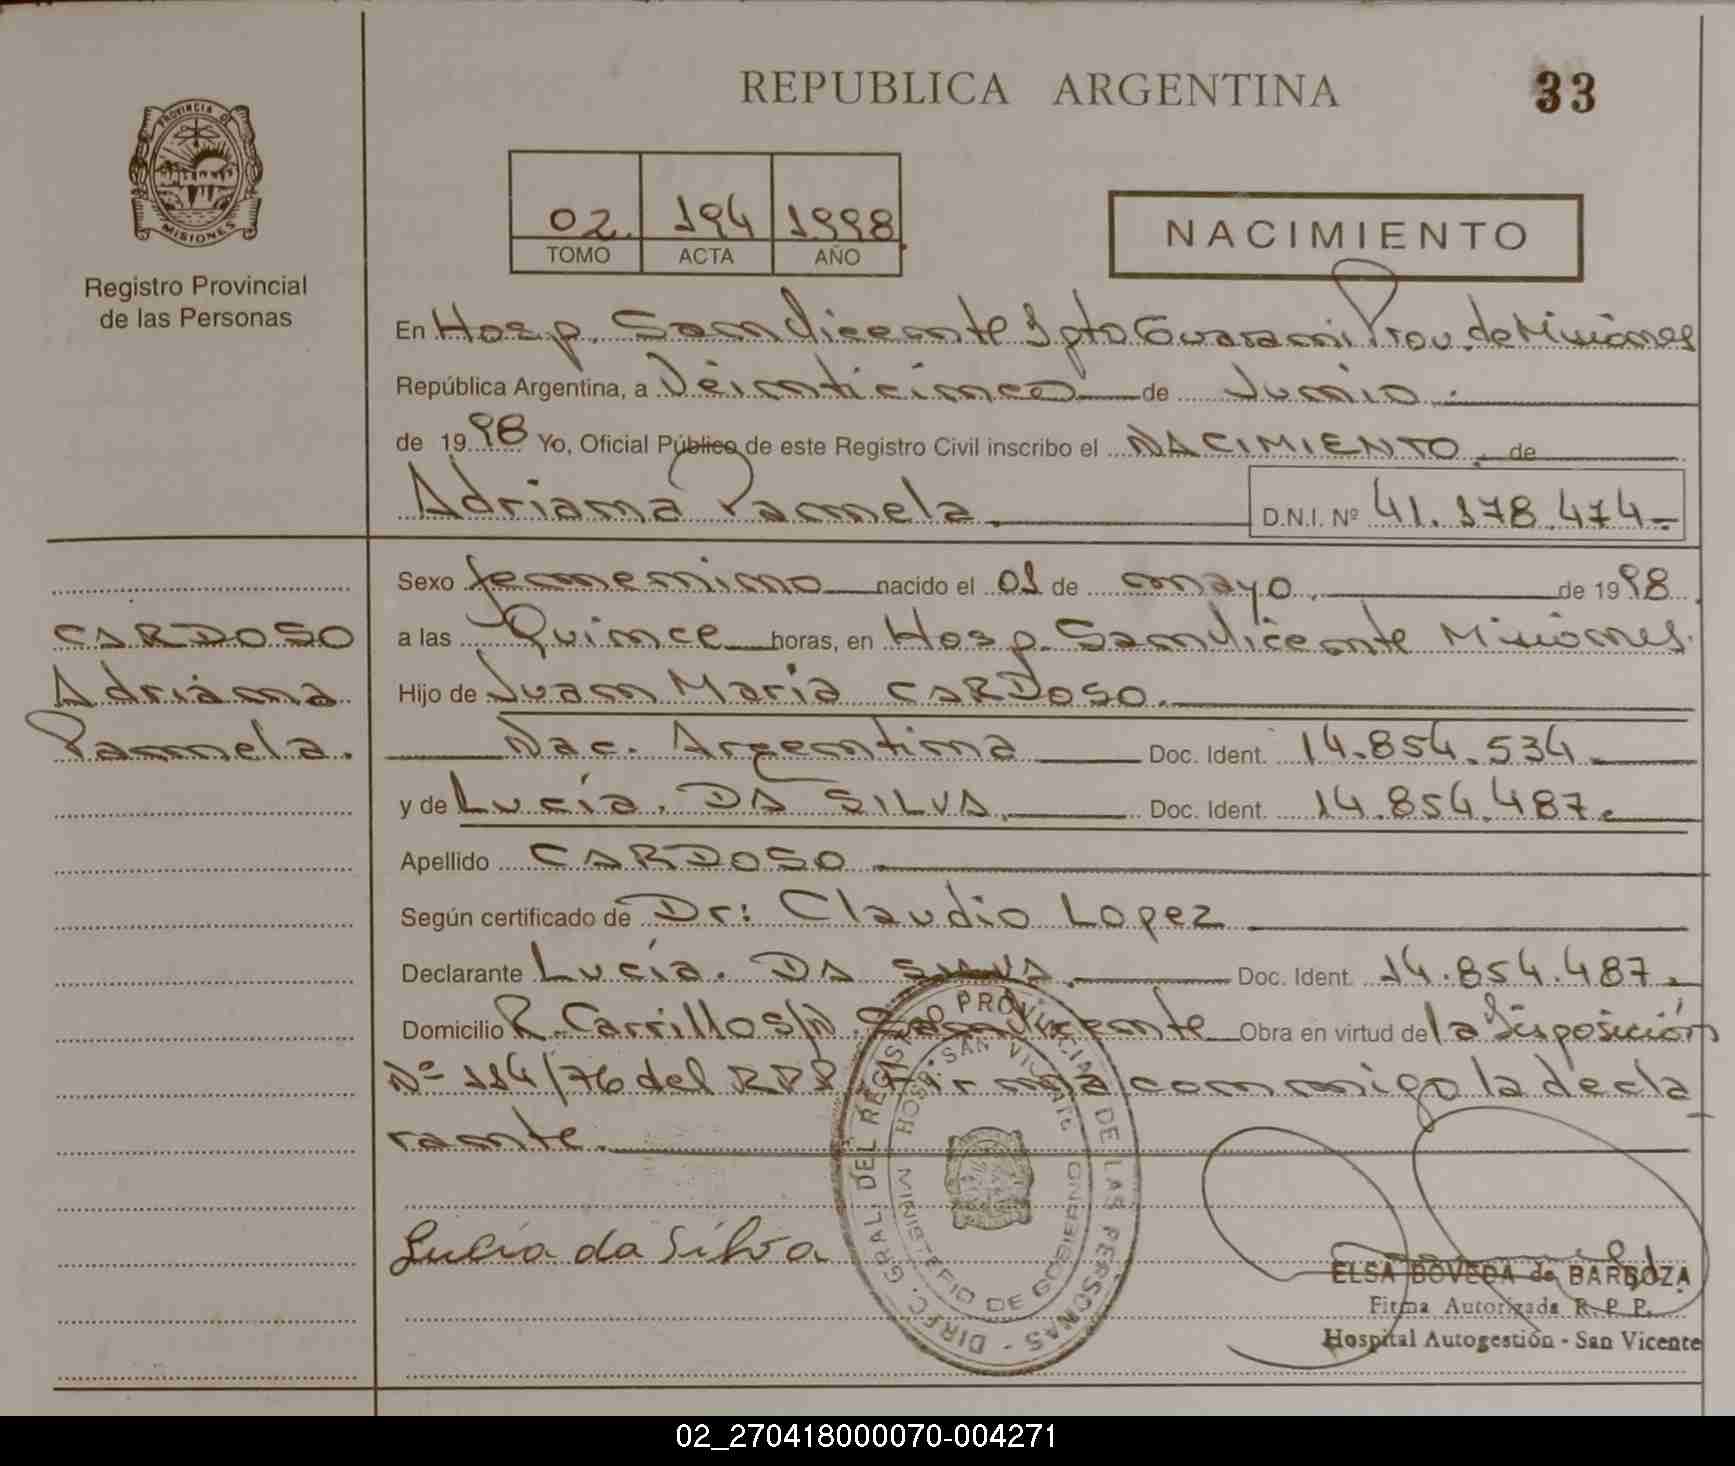 REPUBLICA ARGENTINA
33
PROVINCIA DE
MISIONES
Registro Provincial
de las Personas
02. 194 1998
TOMO ACTA AÑO
NACIMIENTO
En Hosp. San Vicente Dpto Guarani Prov. de Misiones
República Argentina, a Veinticinco de Junio.
de 1998 Yo, Oficial Público de este Registro Civil inscribo el NACIMIENTO. de
Adriana Pamela.
D.N.I. Nº 41.178.474-
Sexo femenino nacido el 01 de mayo. de 1998.
CARDOSO
Adriana
Pamela.
a las Quince horas, en Hosp. San Vicente Misiones.
Hijo de Juan Maria CARDOSO.
Nac. Argentina Doc. Ident. 14.854.534.
y de Lucía. DA SILVA. Doc. Ident. 14.854.487.
Apellido CARDOSO.
Según certificado de Dr: Claudio Lopez
Declarante Lucía. DA SILVA. Doc. Ident. 14.854.487.
Domicilio R. Carrillo s/N. San Vicente Obra en virtud de la Disposición
Nº 114/76 del RPP. Firma conmigo la decla
rante.
Lucia da Silva
DIREC. GRAL. DEL REGISTRO PROVINCIAL DE LAS PERSONAS -
HOSP. SAN VICENTE
MINISTERIO DE GOBIERNO
ELSA BOVEDA de BARBOZA
Firma Autorizada R. P. P.
Hospital Autogestión - San Vicente
02_270418000070-004271